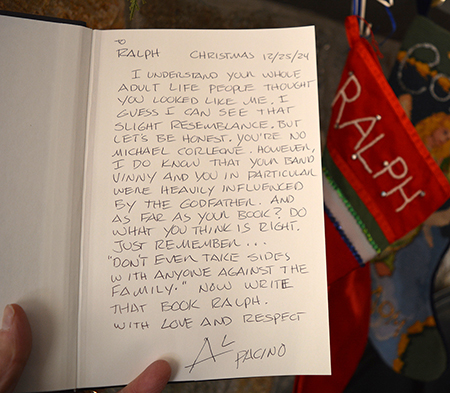 TO
RALPH CHRISTMAS 12/25/24
I UNDERSTAND YOUR WHOLE
ADULT LIFE PEOPLE THOUGHT
YOU LOOKED LIKE ME. I
GUESS I CAN SEE THAT
SLIGHT RESEMBLANCE. BUT
LET'S BE HONEST. YOU'RE NO
MICHAEL CORLEONE. HOWEVER,
I DO KNOW THAT YOUR BAND
VINNY AND YOU IN PARTICULAR
WERE HEAVILY INFLUENCED
BY THE GODFATHER. AND
AS FAR AS YOUR BOOK? DO
WHAT YOU THINK IS RIGHT.
JUST REMEMBER...
"DON'T EVER TAKE SIDES
WITH ANYONE AGAINST THE
FAMILY." NOW WRITE
THAT BOOK RALPH.
WITH LOVE AND RESPECT
AL PACINO
RALPH